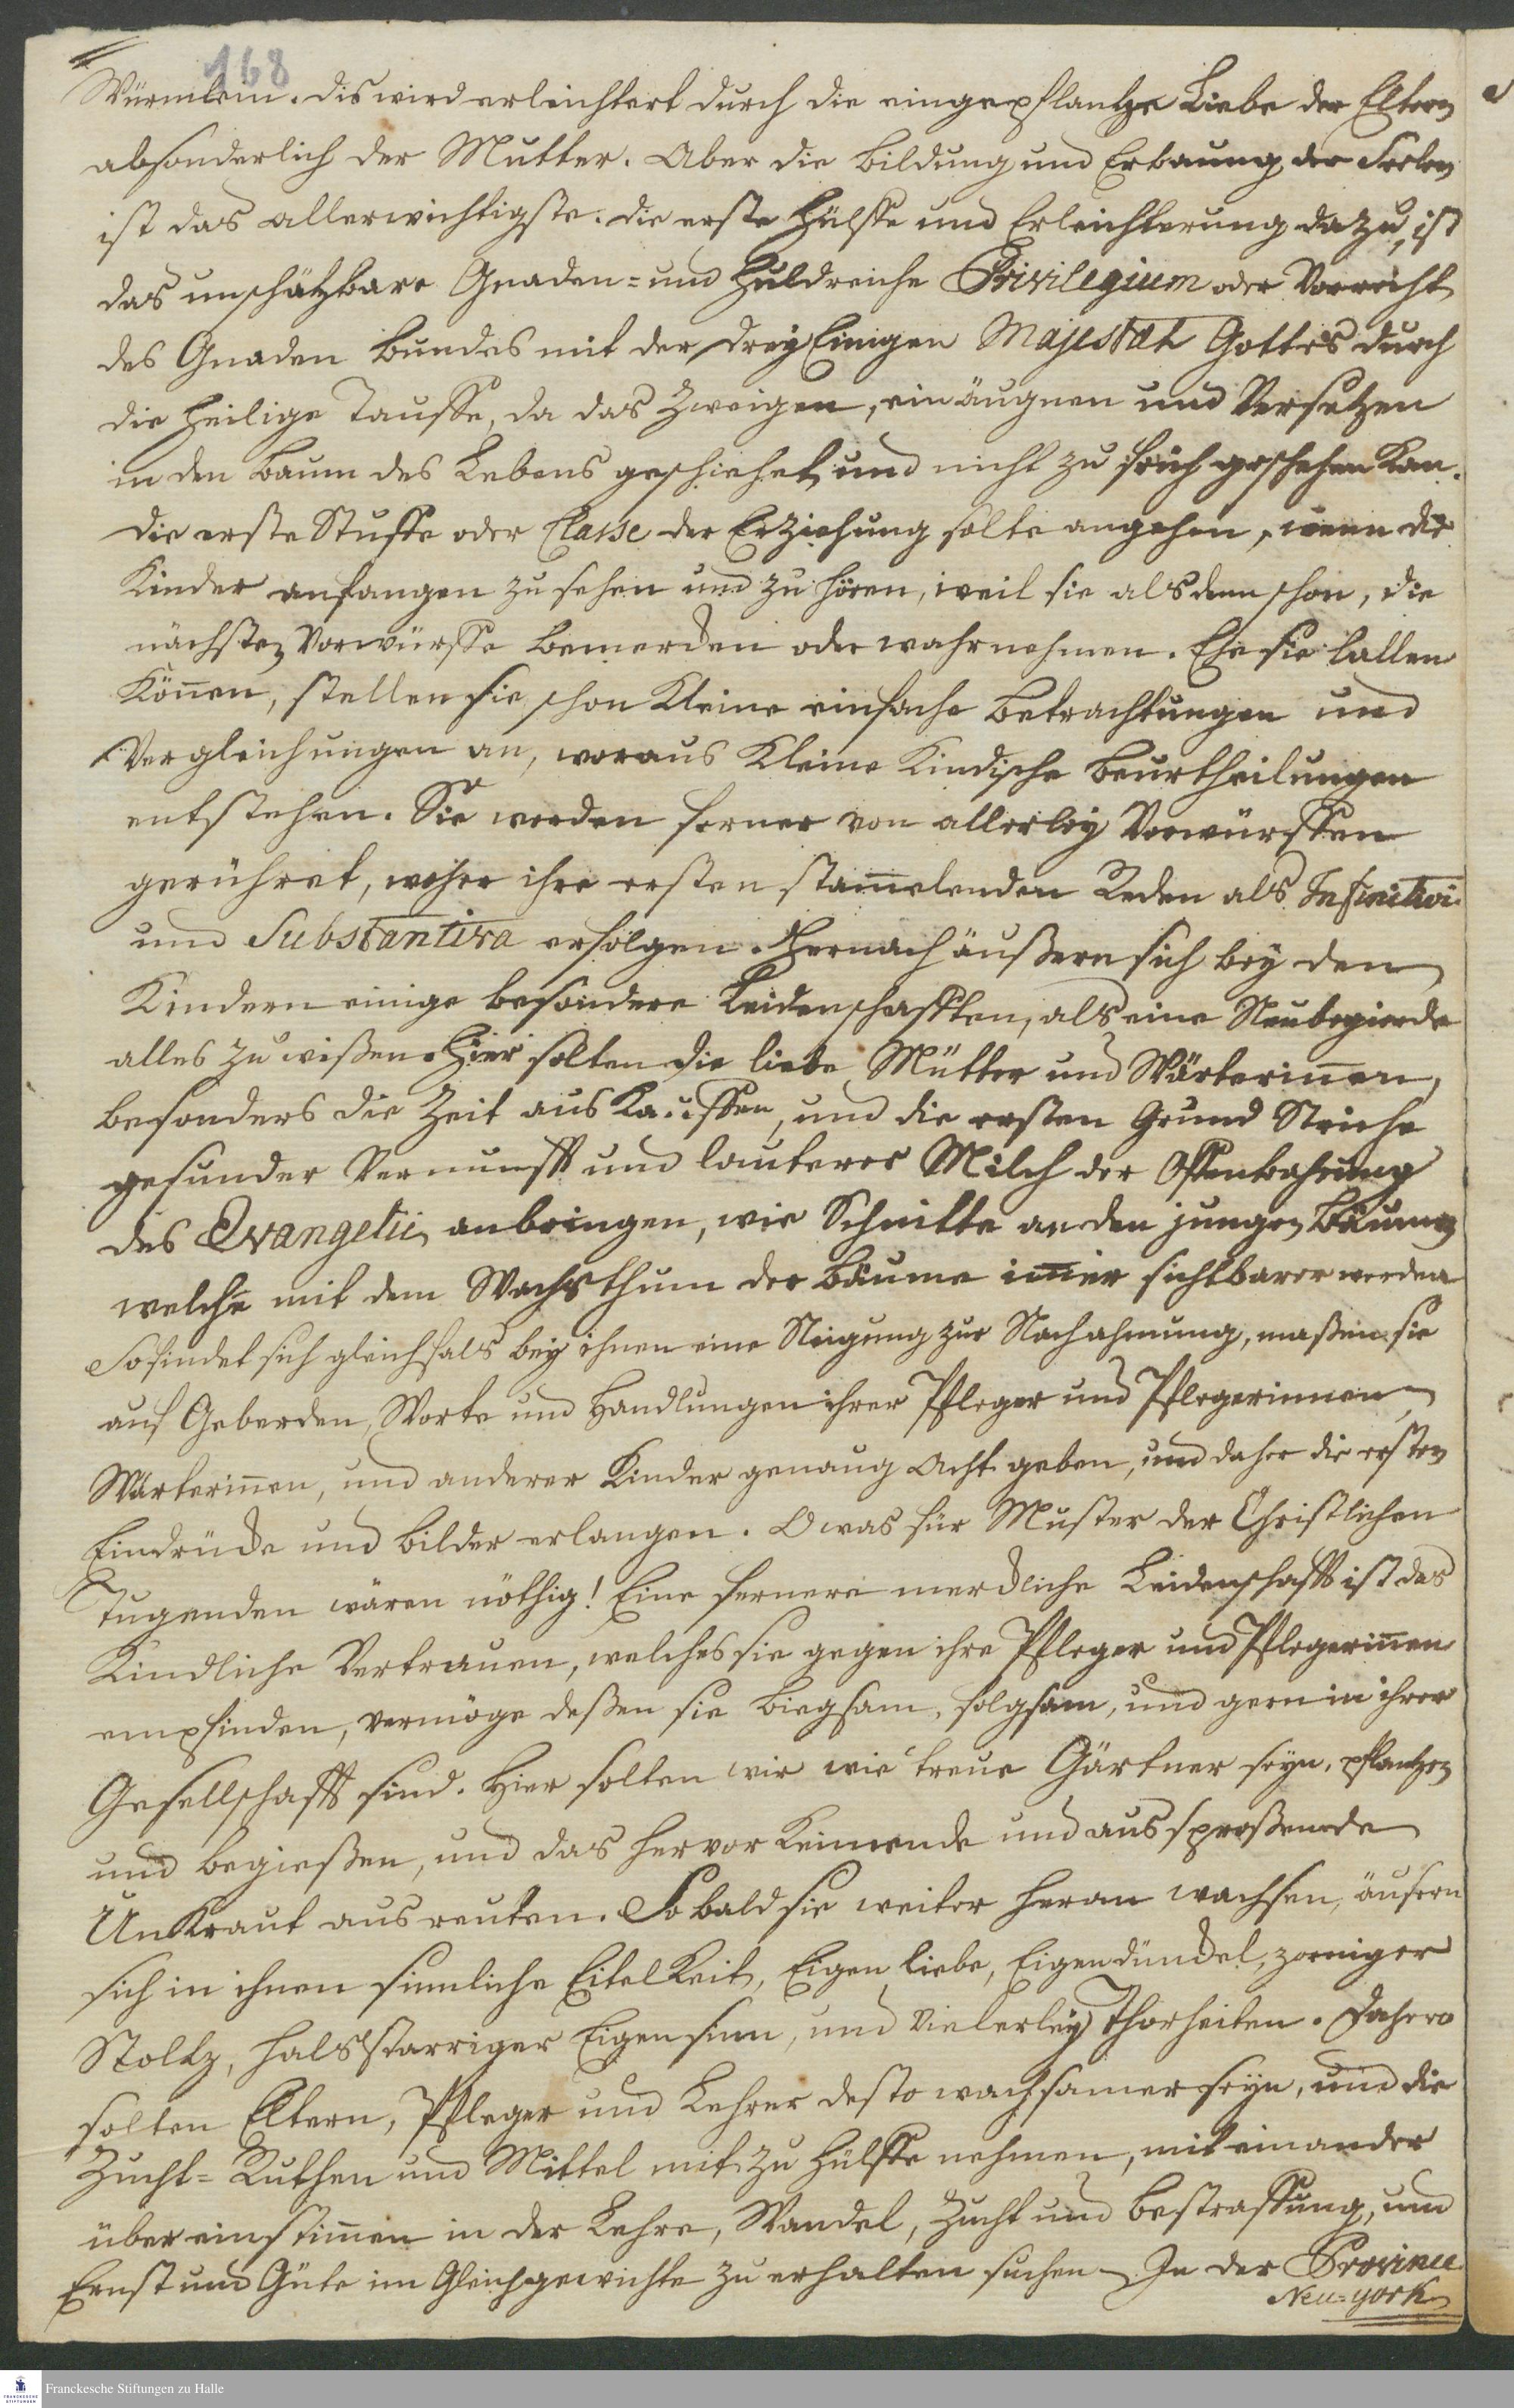 168
Würmlein. Dis wird erleichtert durch die eingepflantze Liebe der Eltern
absonderlich der Mutter. Aber die Bildung und Erbauung der Seelen
ist das allerwichtigste. Die erste Hülffe und Erleichterung dazu, ist
das unschätzbare Gnaden- und Huldreiche Privilegium oder Vorrecht
des Gnaden Bundes mit der dreyEinigen Majestät Gottes durch
die Heilige Tauffe, da das Zweigen, einäugnen und Versetzen
in den Baum des Lebens geschiehet, und nicht zu früh geschehen kan.
Die erste Stuffe oder Classe der Erziehung solte angehen, wenn die
Kinder anfangen zu sehen und zu hören, weil sie alsdenn schon, die
nächsten Vorwürffe bemercken oder wahrnehmen. Ehe sie lallen
Können, stellen sie schon kleine einfache Betrachtungen und
Vergleichungen an, woraus kleine Kindische Beurtheilungen
entstehen. Sie werden ferner von allerley Vorwürffen
gerühret, woher ihre ersten stam̅elenden Reden als Infinitivi
und Substantiva erfolgen. Hernach äußern sich bey den
Kindern einige besondere Leidenschafften, als eine Neubegierde
alles zu wißen. Hier solten die liebe Mütter und Wärterin̅en,
besonders die Zeit auskauffen, und die ersten Grund Striche
gesunder Vernunfft und lauterer Milch der Offenbahrung
des Evangelii anbringen, wie Schnitte an den jungen Bäumen
welche mit dem Wachsthum der Bäume im̅er sichtbarer werden
So findet sich gleichfals bey ihnen eine Neigung zur Nachahmung, maßen sie
auf Geberden, Worte und Handlungen ihrer Pfleger und Pflegerinnen,
Wärterin̅en, und anderer Kinder genaug Acht geben, und daher die ersten
Eindrücke und Bilder erlangen. O was für Muster der Christlichen
Tugenden wären nöthig! Eine fernere merckliche Leidenschafft ist das
Kindliche Vertrauen, welches sie gegen ihre Pfleger und Pflegerin̅en
empfinden, vermöge deßen sie biegsam, folgsam, und gern in ihrer
Gesellschafft sind. Hier solten wir wie treue Gärtner seyn, pflantzen
und begießen, und das hervor Keimende und aussproßende
UnKraut ausreuten. So bald sie weiter heran wachsen, äusern
sich in ihnen sinnliche EitelKeit, Eigen liebe, Eigendünckel, zorniger
Stoltz, halsstarriger Eigensinn, und vielerley Thorheiten. Dahero
solten Eltern, Pfleger und Lehrer desto wachsamer seyn, und die
Zucht-Ruthen und Mittel mit zu Hülffe nehmen, mit einander
übereinstim̅en in der Lehre, Wandel, Zucht und Bestraffung, und
Ernst und Güte im Gleichgewichte zu erhalten suchen – In der Province
Neu-york
Franckesche Stiftungen zu Halle